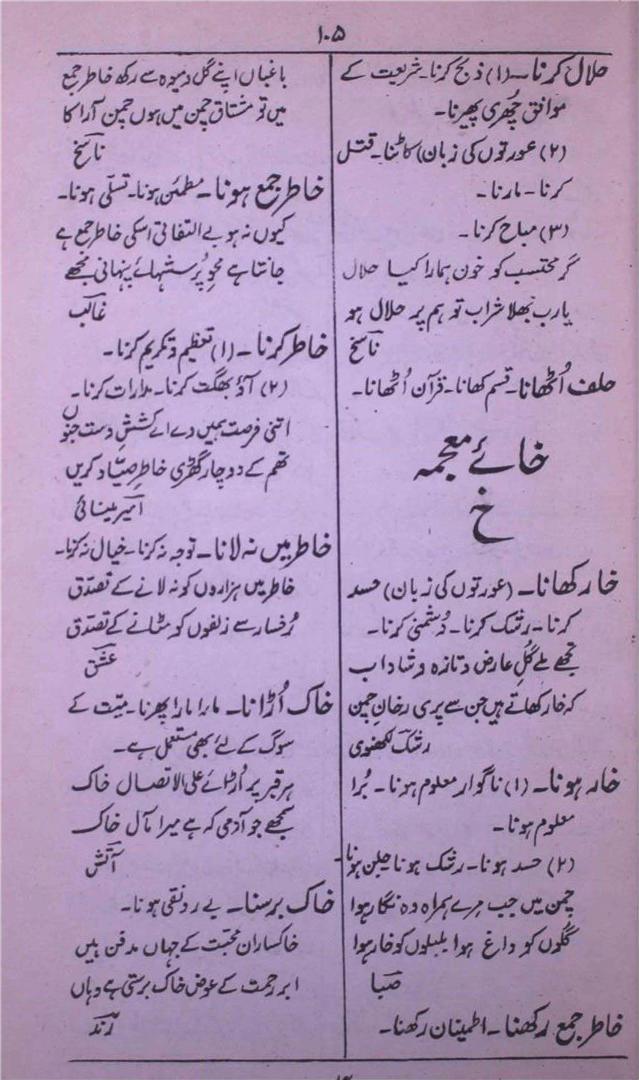 ۱۰۵
حلال کرنا۔ (۱) ذبح کرنا۔ شریعت کے
موافق چھری پھیرنا۔
(۲) عورتوں کی زبان) کاٹنا۔ قتل
کرنا۔ مارنا۔
(۳) مباح کرنا۔
گر محتسب کو خون ہمارا کیا حلال
یارب بھلا شراب تو ہم پر حلال ہو
ناسخ
حلف اُٹھانا۔ قسم کھانا۔ قرآن اُٹھانا۔
خائے معجمہ
خ
خار کھانا۔ (عورتوں کی زبان) حسد
کرنا۔ رشک کرنا۔ دُشمنی کرنا۔
تجھے ملے گُلِ عارض وتازہ وشاداب
کہ خار کھاتے ہیں جن سے پری رخانِ چمن
رشک لکھنوی
خار ہونا۔ (۱) ناگوار معلوم ہونا۔ بُرا
معلوم ہونا۔
(۲) حسد ہونا۔ رشک ہونا جلن ہونا۔
چمن میں جب مرے ہمراہ وہ نگار ہوا
گُلوں کو داغ ہوا بلبلوں کو خار ہوا
صبا
خاطر جمع رکھنا۔ اطمینان رکھنا۔
باغباں اپنے گل ومیوہ سے رکھ خاطر جمع
میں تو مشتاق چمن میں ہوں چمن آرا کا
ناسخ
خاطر جمع ہونا۔ مطمئن ہونا۔ تسلّی ہونا۔
کیوں نہ ہو بے التفاتی اسکی خاطر جمع ہے
جانتا ہے محوِ پرسشہائے پنہانی مجھے
غالب
خاطر کرنا۔ (۱) تعظیم وتکریم کرنا۔
(۲) آؤ بھگت کرنا۔ مدارات کرنا۔
اتنی فرصت ہمیں دے اے کششِ دست جنوں
تھم کے دوچار گھڑی خاطرِ صیّاد کریں
امیر مینائی
خاطر میں نہ لانا۔ توجہ نہ کرنا۔ خیال نہ کرنا۔
خاطر میں ہزاروں کو نہ لانے کے تصدّق
رُخسار سے زلفوں کو ہٹانے کے تصدق
عشق
خاک اُڑانا۔ مارا مارا پھرنا۔ میّت کے
سوگ کے لئے بھی مستعمل ہے۔
ہر قبر پر اُڑائے علی الاتصال خاک
سمجھے جو آدمی کہ ہے میرا مآل خاک
آتش
خاک برسنا۔ بے رونقی ہونا۔
خاکساران محبّت کے جہاں مدفن ہیں
ابرِ رحمت کے عوض خاک برستی ہے وہاں
رند